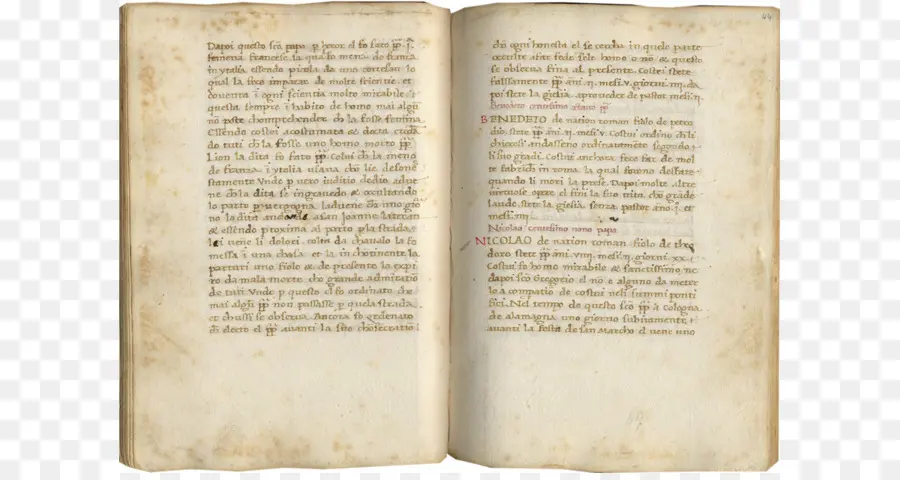 Dapoi questo sco papa p hrror el fo fato pp. J.
femena francese la qual fo mena da
in ytalia essendo picola da uno cortesan lo
qual la fece imparar de molte scientie. et
doventa i ogni scientia molto mirabile &
questa sempre i habito de homo mai algun
no pote chomprehender ch la fosse femina
Essendo costei acostumata & docta
do tuti ch la fosse uno homo morto pp.
Lion la dita fo fato pp. Colui ch la meno
de franza i ytalia usava chon lie desone
stamente Unde p vero iuditio dedio
ne ch la dita se ingravedo & occultando
lo parto p vergogna
no la dita andando a san Joanne lateran
& essendo proxima al parto p la strada
lei vene li dolori. da chavalo la fo
messa i una chasa. et la in chotinente la
parturi uno fiolo & de presente la expi
ro da mala morte cho grande admiratio
de tuti. Unde p questo el fo ordinato che
mai algun pp non passasse p quela strada.
et chussi se observa. Ancora fo ordenato
ch electo el pp avanti la sua
44
chon ogni honesta el se cercha in quele parte
oculte aste fede sele homo o no. & questo
se observa fina al presente. Costei stete
falssamente pp. ani. ii. mesi. v. giorni. iiii. da
poi stete la giesia apoveder de pastor mesi. ii.
Benedeto centesimo otavo pp
BENEDETO de nation roman fiolo de petro
stete pp. ani. ii. mesi. v. Costui ordino ch li
chieresi andasseno ordinatamete segondo
li suo gradi. Costui anchora fece far de mol
te fabriche in roma. la qual foreno desfate
quando li mori la prese. Dapoi molte altre
virtuose opere el fini la suo vita. cho grade
laude. stete la giesia senza pastor ano. j. et
mesi. iiii.
Nicolao centesimo nono papa
NICOLAO de nation roman fiolo de theo
doro stete pp. ani. viiii. mesi. ii. giorni. xx.
Costui fo homo mirabile & sanctissimo. ne
dapoi sco Gregorio el no e alguno da meter
a la compatio de costui neli summi ponti
fici. Nel tempo da questo sco pp. a cologna
de alamagna uno giorno subitamente
avanti la festa de san Marcho el vene uno